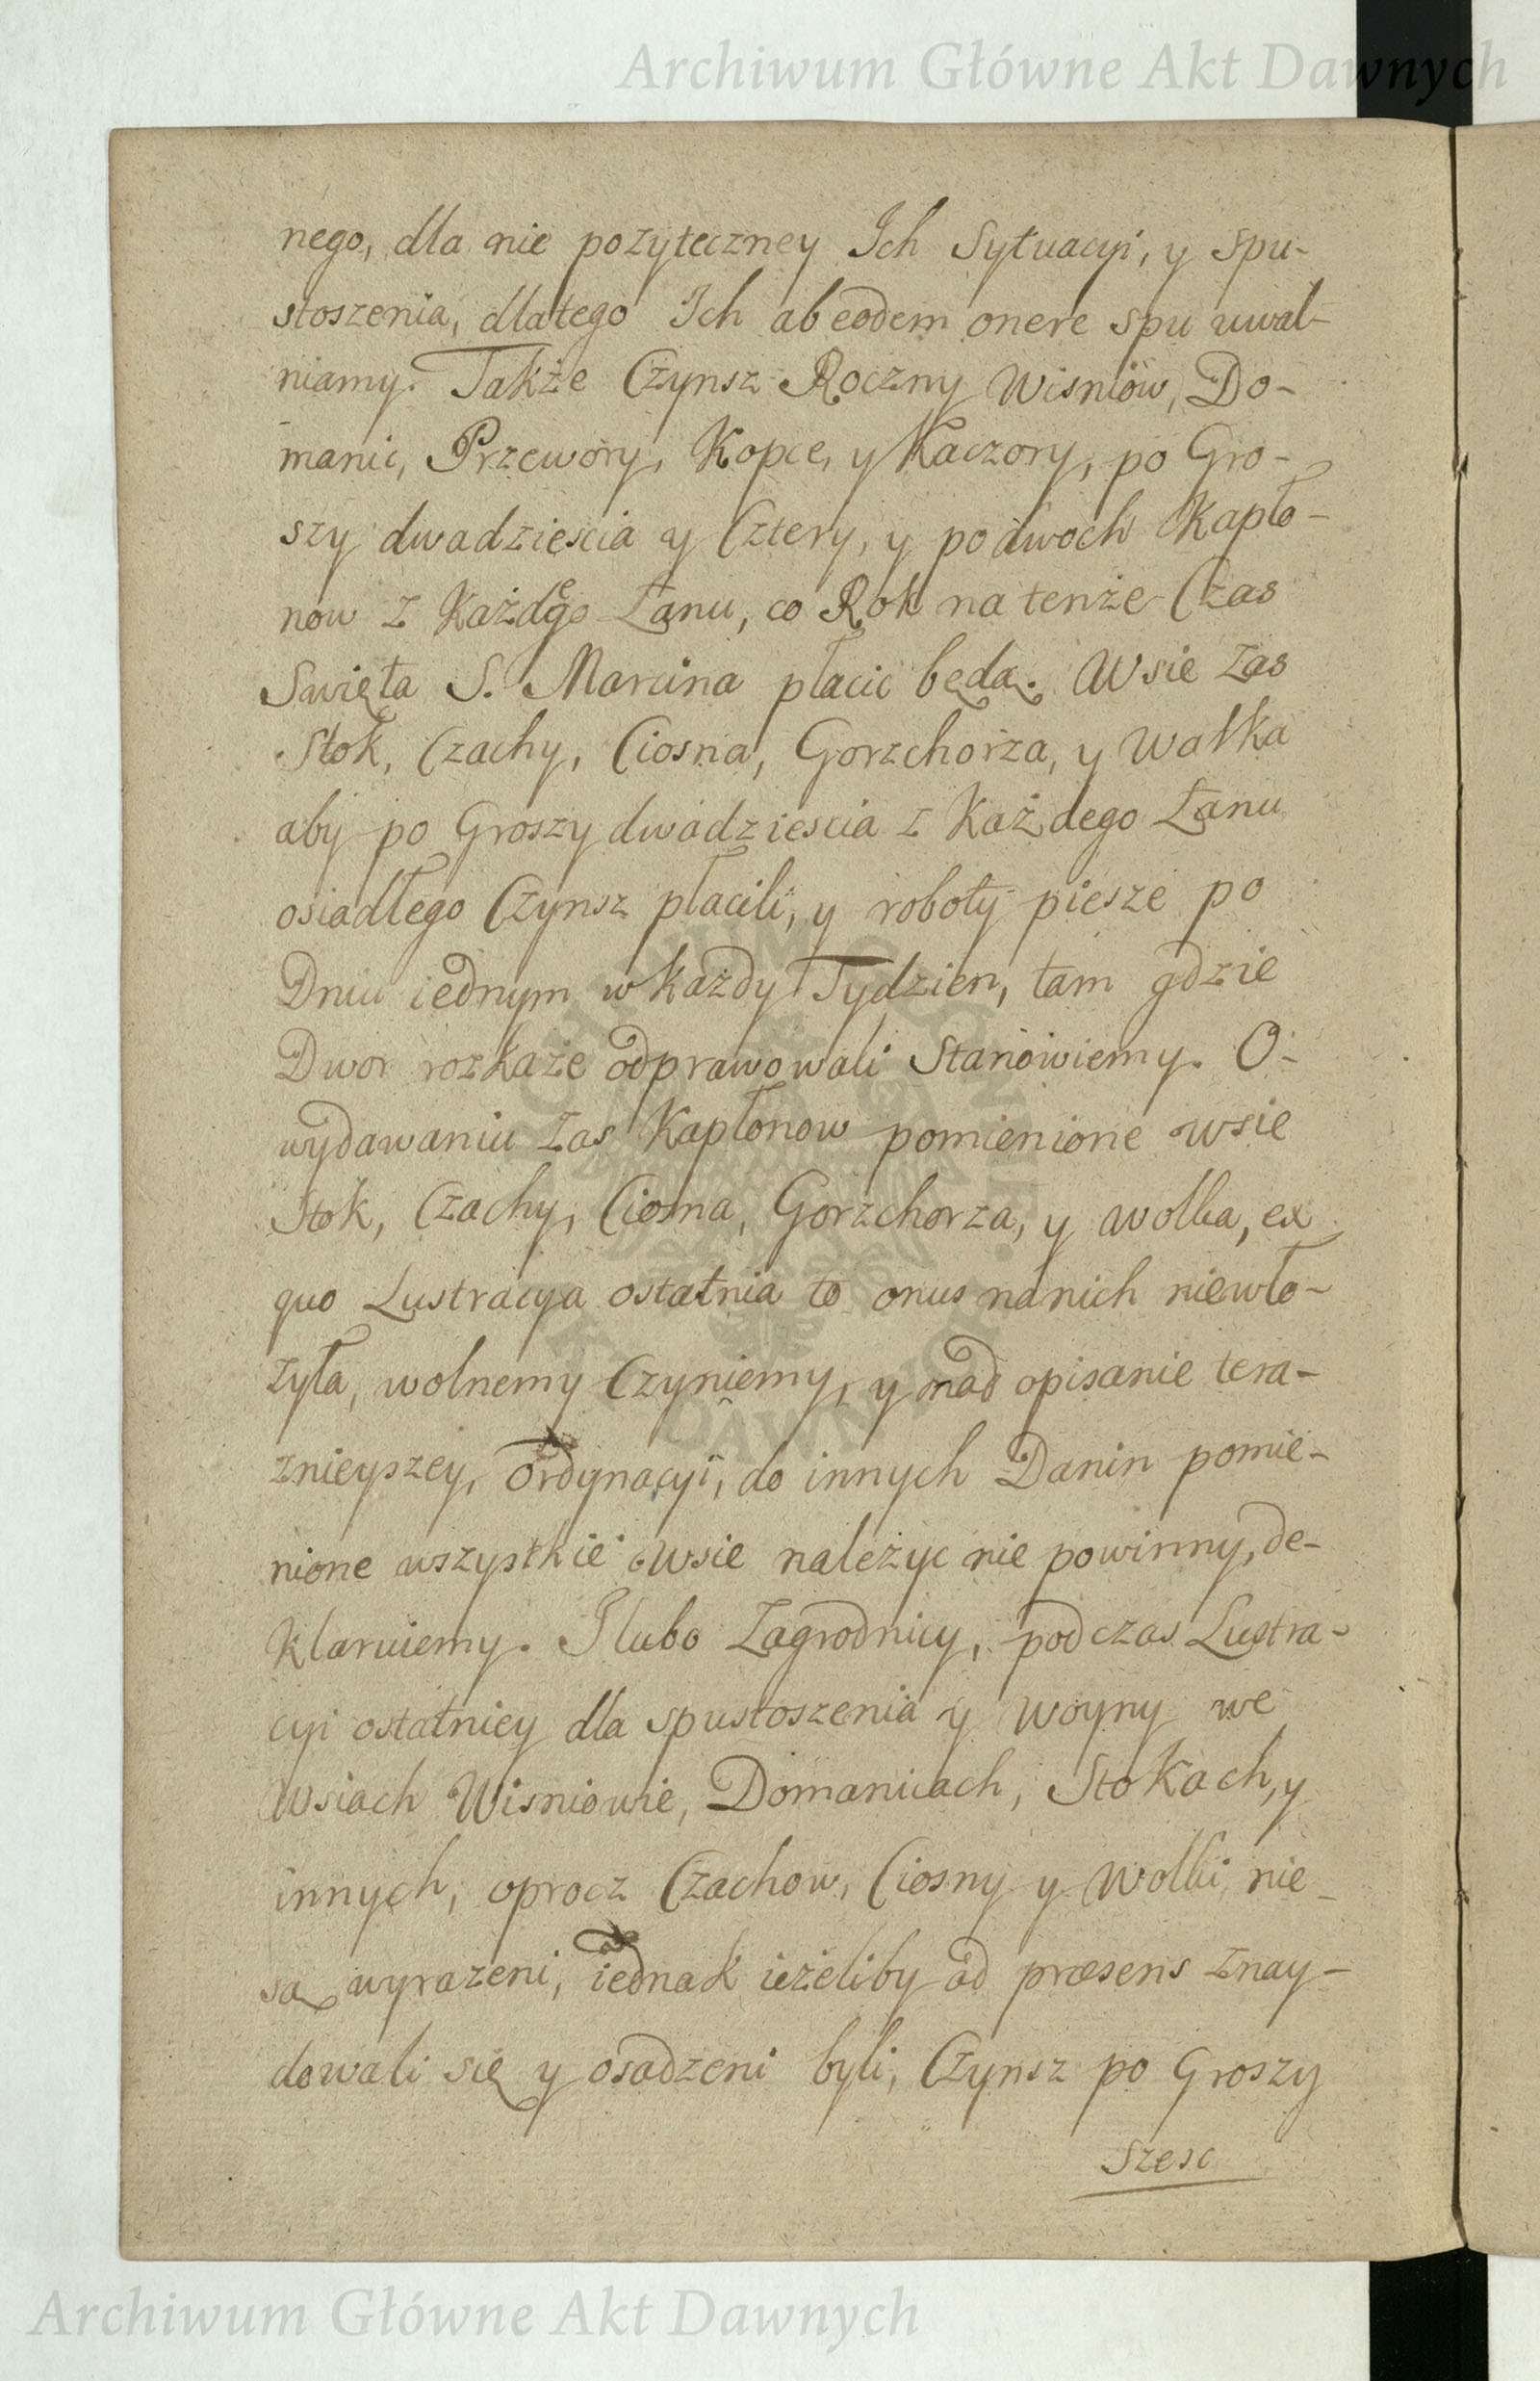 Archiwum Główne Akt Dawnych
nego, dla nie pozyteczney Ich Sytuacyi, y spu-
stoszenia, dlatego Ich ab eodem onere spu uwal-
niamy. Także Czynsz Roczny Wisniow, Do-
manic, Przewory, Kopce, y Kaczory, po Gro-
szy dwadziescia y Cztery, y po dwoch Kapło-
now z Każdego Łanu, co Rok na tenże Czas
Swięta S. Marcina płacic będą. Wsie zas
Stok, Czachy, Ciosna, Gorzchorza, y Wolka
aby po Groszy dwadziescia z Każdego Łanu
osiadłego Czynsz płacili, y roboty piesze po
Dniu iednym w każdy Tydzien, tam gdzie
Dwor rozkaże odprawowali Stanowiemy. O-
wydawaniu zas Kapłonow pomienione wsie
Stok, Czachy, Ciosna, Gorzchorza, y Wolka, ex
quo Lustracya ostatnia to onus na nich niewło-
żyła, wolnemy Czyniemy, y nad opisanie tera-
znieyszey, ordynacyi, do innych Danin pomie-
nione wszystkie wsie należyc nie powinny, de-
klaruiemy. I lubo Zagrodnicy, podczas Lustra-
cyi ostatniey dla spustoszenia y Woyny we
Wsiach Wisniowie, Domanicach, Stokach, y
innych, oprocz Czachow, Ciosny y Wolki, nie-
są wyrazeni, iednak ieżeliby ad præsens znay-
dowali się y osadzeni byli, Czynsz po Groszy
Szesc
Archiwum Główne Akt Dawnych